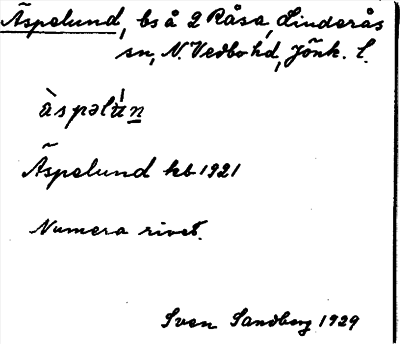 Äspelund, bs å 2 Råsa, Linderås
sn, N. Vedbo hd, Jönk. l.
àspəlún
Äspelund kb 1921
Numera rivet.
Sven Sandberg 1929